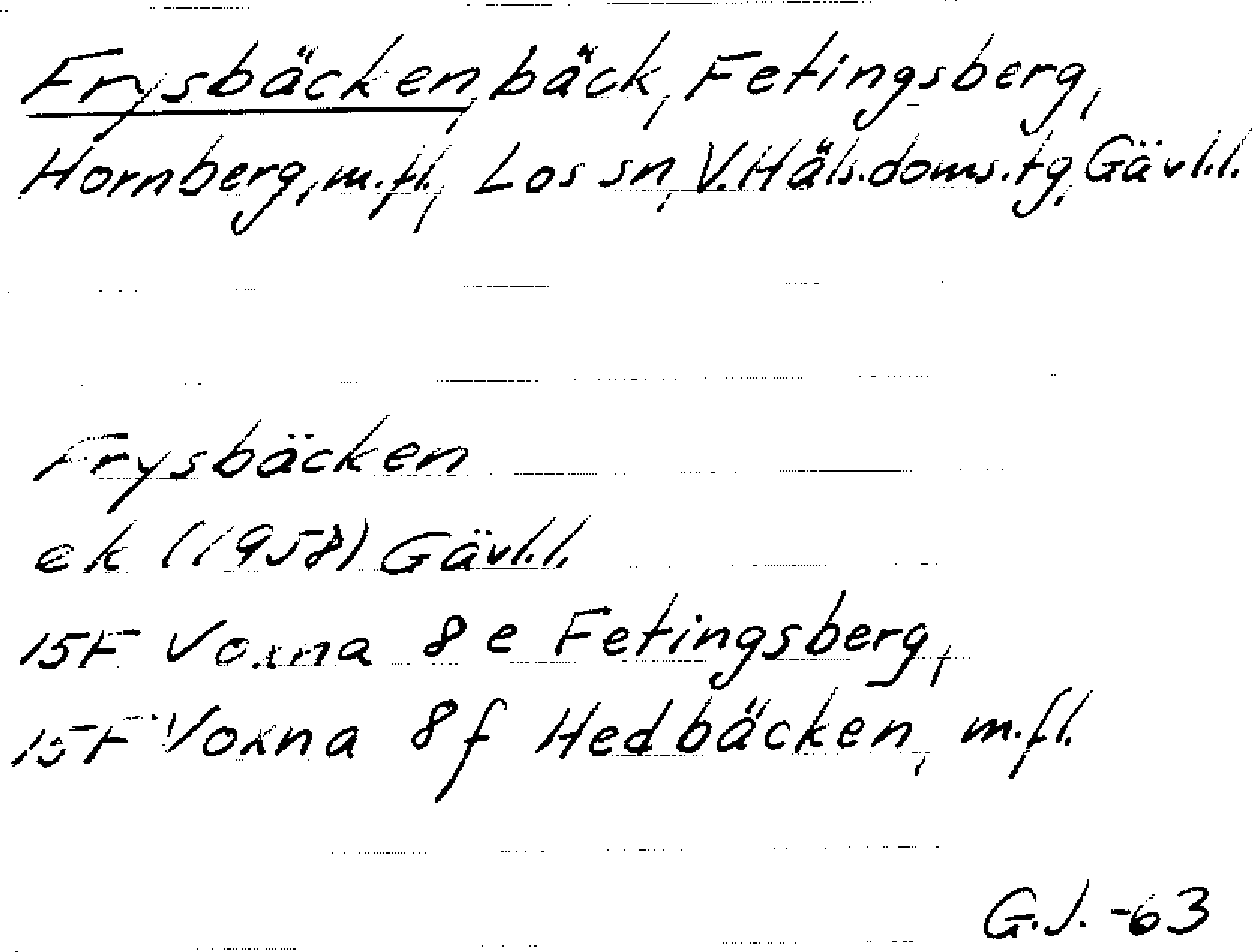 Frysbäcken, bäck, Fetingsberg,
Hornberg, m.fl., Los sn, V.Häls.doms.tg, Gävl.l.
Frysbäcken
ek (1958) Gävl.l.
15F Voxna 8e Fetingsberg,
15F Voxna 8f Hedbäcken, m.fl.
G.J. -63